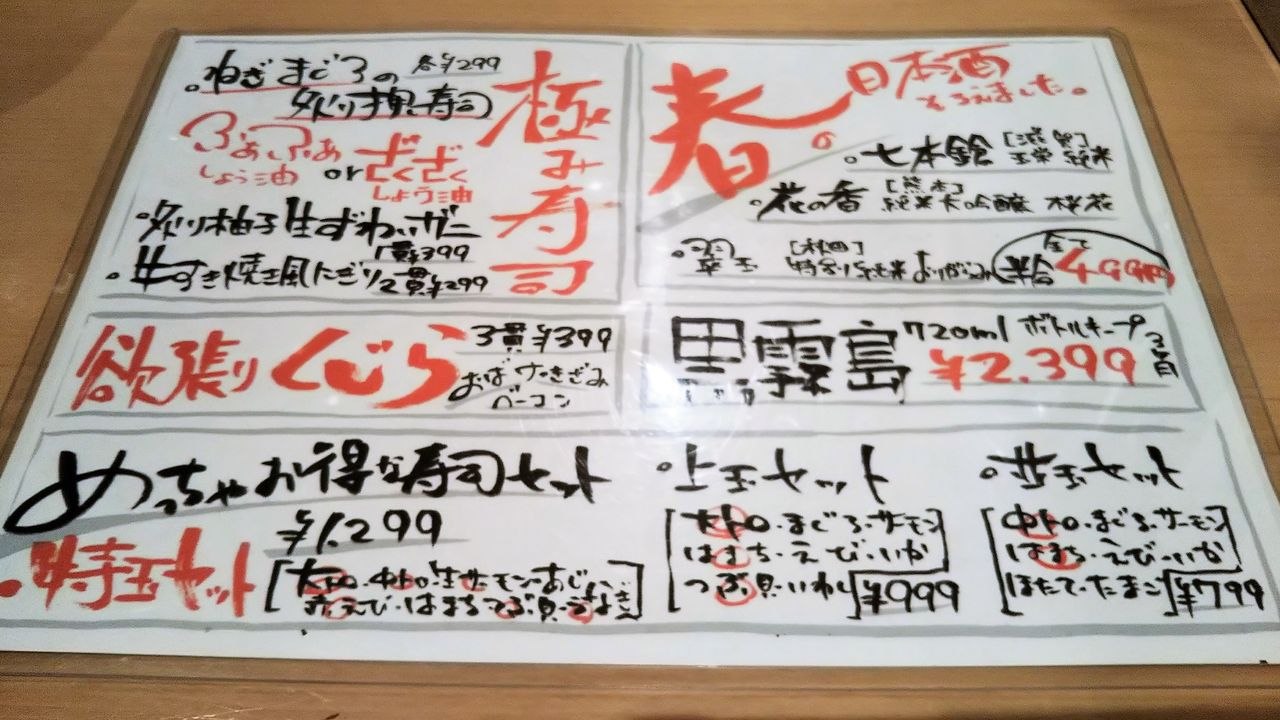 極み寿司
。ねぎまぐろの 各¥299
炙り押し寿司
ふぁふぁ
しょう油
or
ざくざく
しょう油
・炙り柚子生ずわいガニ
1貫¥399
・牛すき焼き風にぎり 2貫¥299
春。
日本酒
そろえました。
。七本鎗 [滋賀] 玉栄 純米
。花の香 [熊本] 純米大吟醸 桜花
[秋田]
特別純米
全て
半合 499円
欲張りくじら
3貫¥399
おばけ・きざみ
ベーコン
黒霧島
720ml ボトルキープ 3ヶ月
¥2.399
めっちゃお得な寿司セット
・特玉セット
¥1.299
[大トロ・中トロ・生サーモン・あじ
赤えび・はまち・つぶ貝・うなぎ]
。上玉セット
[大トロ・まぐろ・サーモン
はまち・えび・いか
つぶ貝・いわし]
¥999
。並玉セット
[中トロ・まぐろ・サーモン
はまち・えび・いか
ほたて・たまご]
¥799